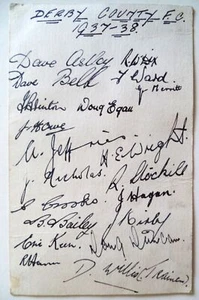 DERBY COUNTY F.C.
1937-38.
Dave Astley
Dave Bell T Ward
Jack Hinton Doug Egan
J. Howe
A. Jeffries
J. Nicholas H. E. Wright.
R. Stockill
S Crooks J Hagan
L. Bailey Kirby
Eric Keen. Doug Duncan.
D. Willis (Trainer)